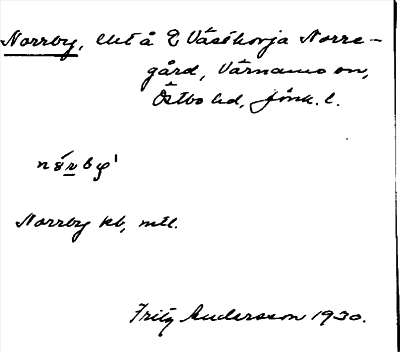 Norrby, lht å Västhorja Norre-
gård, Värnamo sn,
Östbo hd, Jönk. l.
Norrby kb, mtl.
Fritz Andersson 1930.